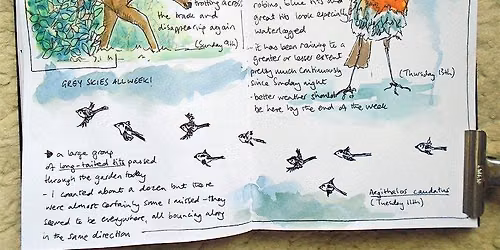 trotting across
the track and
disappearing again
(Sunday 9th)
robins, blue tits and
great tits look especially
waterlogged
- it has been raining to a
greater or lesser extent
pretty much continuously
since Sunday night
- better weather should
be here by the end of the week
(Thursday 13th)
GREY SKIES ALL WEEK!
a large group
of long-tailed tits passed
through the garden today
- I counted about a dozen but there
were almost certainly some I missed - they
seemed to be everywhere, all bouncing along
in the same direction
Aegithalos caudatus
(Tuesday 11th)